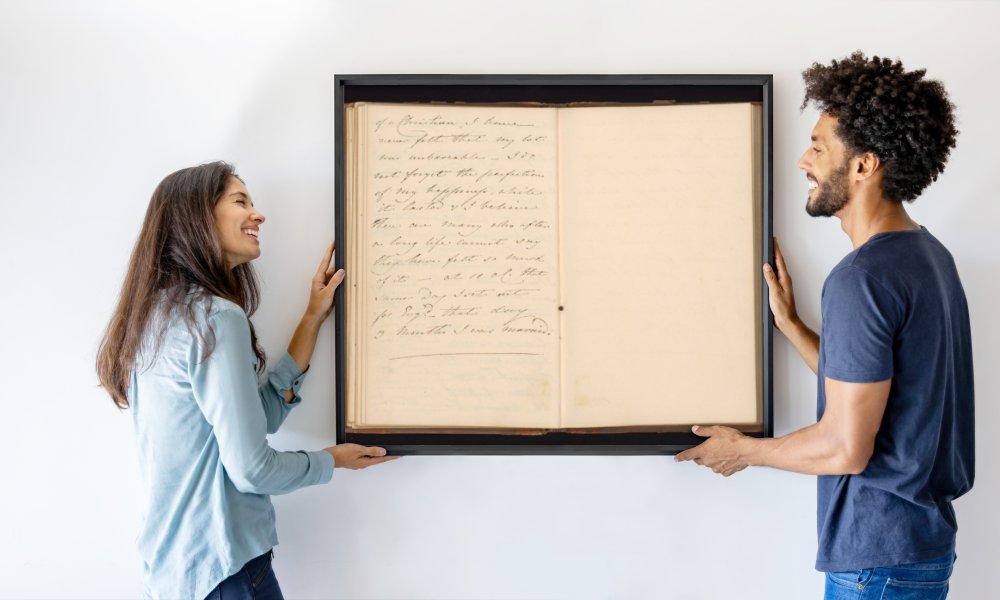 of a Christian, I have
never felt that my lot
was unbearable – I do
not forget the perfection
of my happiness while
it lasted & I believe
there are many who after
a long life cannot say
they have felt so much
of it – at 11 o'. that
same day I set out
for Eng.d – that day
3 Months I was married.